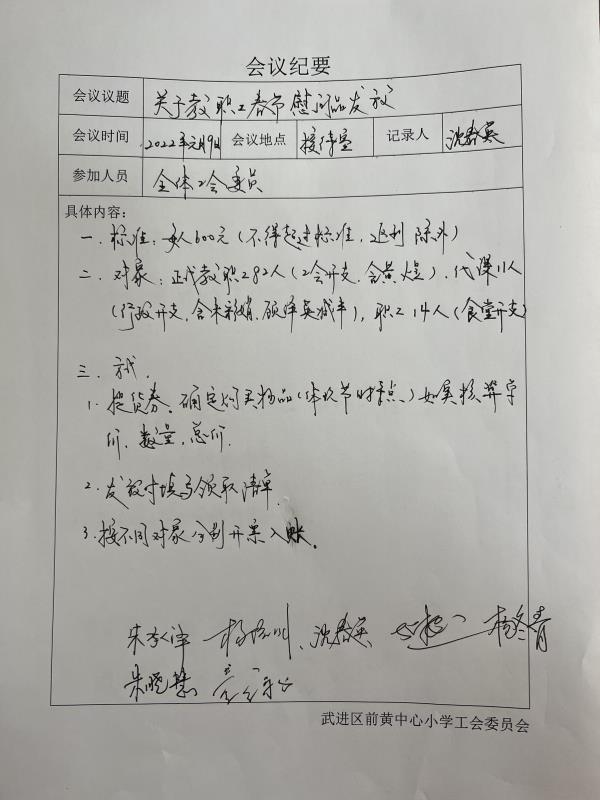 会议纪要
会议议题 关于教职工春节慰问品发放
会议时间 2022年元月9日 会议地点 接待室 记录人 沈春英
参加人员 全体工会委员
具体内容：
一、标准：每人600元（不得超过标准，返利除外）
二、对象：正式教职工82人（工会开支，含黄煜），代课11人
（行政开支，含朱彩娟、顾泽英减半），职工14人（食堂开支）
三、方式：
1. 提货券、确定购买物品（体现节时特点、）如实核算字
价、数量、总价.
2. 发放时填写领取清单.
3. 按不同对象分别开票入账。
沈春英
朱晓慧
武进区前黄中心小学工会委员会